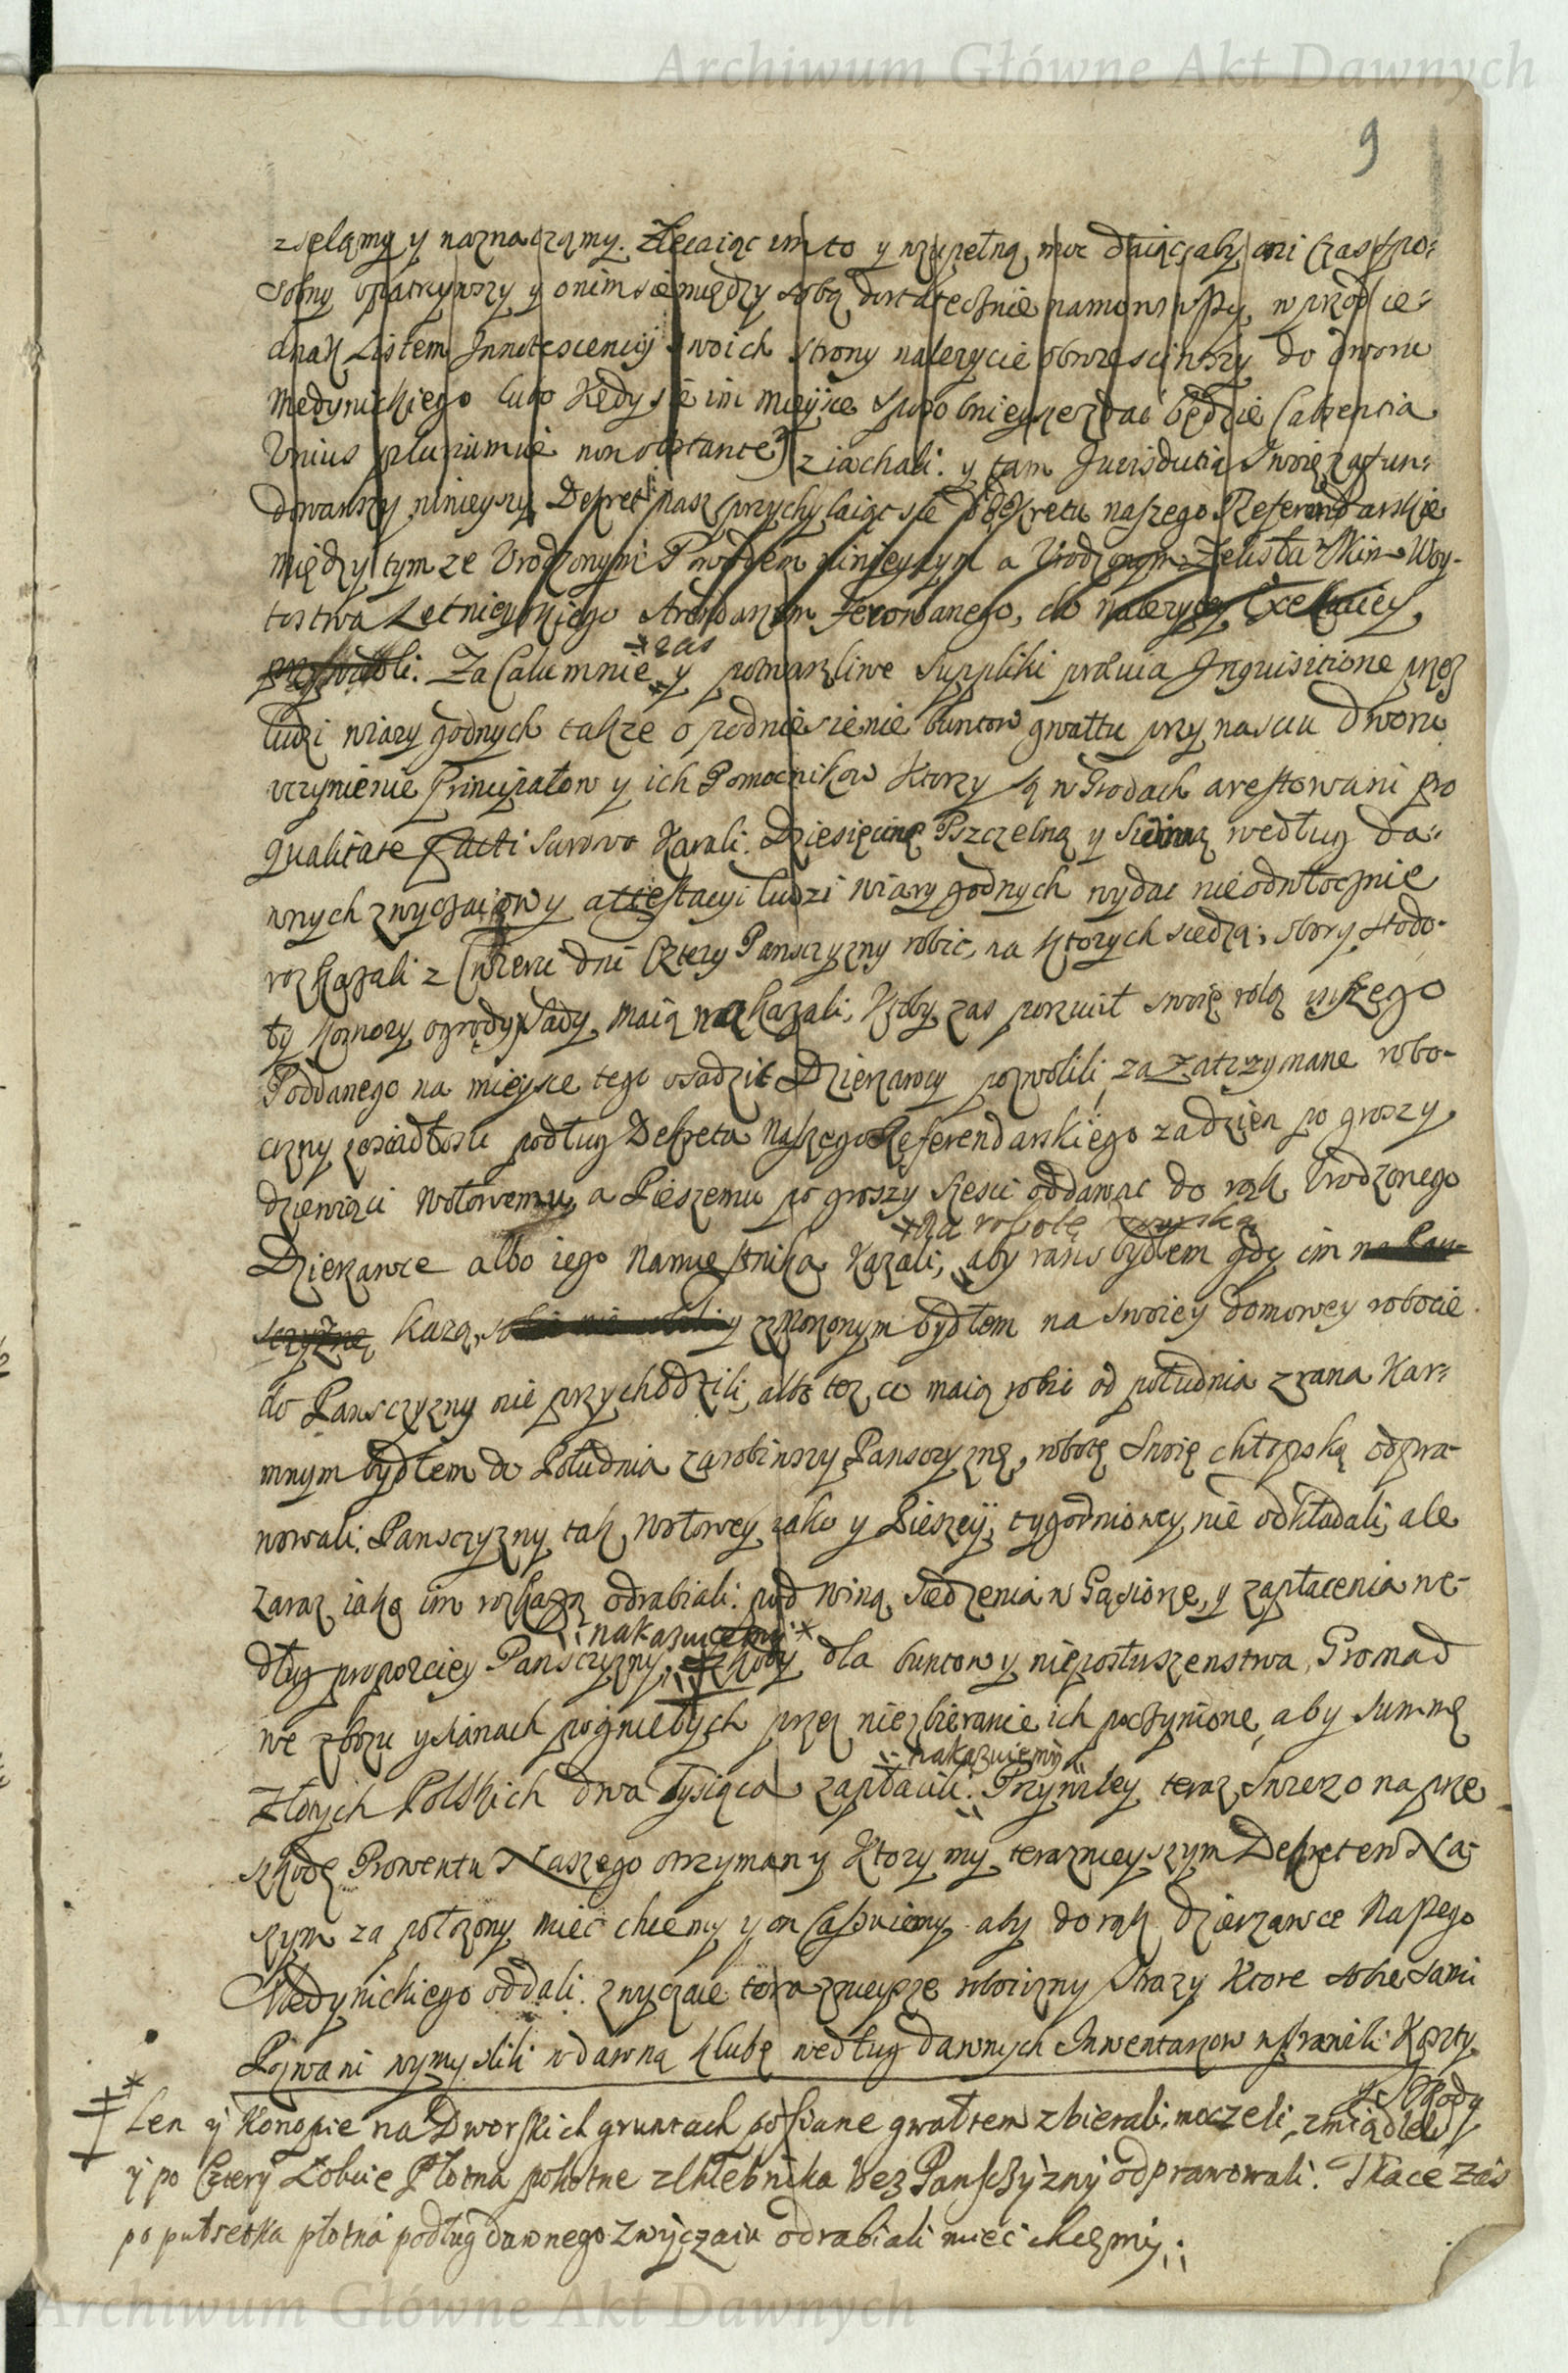 Archiwum Główne Akt Dawnych
9
zsełąmy y naznaczamy. Zlecaiąc im to y zupełną moc daiąc, aby oni czas spo=
sobny upatrzywszy y onim sie między sobą dostatecznie namowiwszy, w przod ie=
dnak Listem Innotescencÿ swoich strony nalezycie obwiesciwszy do dworu
Medynickiego lubo kędy sie im mieysce sposobnieysze zdać będzie (absentia
Unius pluriumue non obstante) ziachali. y tam Jurisdictią swoię zafun=
dowawszy ninieyszy Dekret nasz przychylaiąc sie do Dekretu naszego Referendarskie
między tymze Urodzonym Powodem ninieyszym a Urodzonym
tostwa Letnieyskiego Arendarzem ferowanego, do nalezytey Exekuciey
Za Calumnie *zas y potwarzliwe suppliki praevia Inquisitione przez
ludzi wiary godnych takze o podniesienie buntow gwałtu przy nasciu dworu
uczynienie Principałow y ich Pomocnikow ktorzy są w Grodach arestowani pro
qualitate facti surowo karali. Dziesięcinę Pszczelną y według da=
wnych zwyczaiow y attestacyi ludzi wiary godnych wydac nieodwłocznie
rozkazali z Cwierci dni Cztery Panszczyzny robic, na ktorych siedzą, stodo=
ły komory ogrody, sady maią nakazali, ktoby zas porzucił swoię rolą inszego
Poddanego na mieysce tego osadzić Dzierzawcy pozwolili, za zatrzymane robo=
cizny podług Dekretu Naszego Referendarskiego za dzien po groszy
dziewiąci wołowemu, a Pieszemu po groszy szesci oddawac do rąk Urodzonego
Dzierzawce albo iego Namiestnika kazali, aby rano bydłem gdy im *na robotę
kazą, y zmorzonym bydłem na swoiey domowey robocie
do Panszczyzny nie przychodzili, albo tez, co maią robic od południa z rana kar=
mnym bydłem do Południa zarobiwszy Panszczyznę, robotę swoię chłopską odpra=
wowali. Panszczyzny tak wołowey iako y Pieszeÿ tygodniowey nie odkładali, ale
zaraz iako im rozkazą odrabiali. pod winą siedzenia w Gąsiorze, y zapłacenia we=
dług proporciey Panszczyzny, nakazuiemy * szkody dla buntow y nieposłuszenstwa Gromad
we zbozu y sianach pogniełych przez niezbieranie ich poczynione, aby summę
Złotych Polskich dwa tysiąca zapłacili nakazuiemÿ. Przywiley teraz swiezo na prze
szkodę Prowentu Naszego otrzymany ktory my terazneyszym Dekretem Na=
szym za połozony miec chcemy y on Cassuiemy aby do rąk dzierzawce Naszego
Medynickiego oddali. zwyczaie teraznieysze robocizny Strazy ktore sobie sami
Pozwani wymyslili w dawną klubę według dawnych Inwentarzow wprawili
* Len ÿ Konopie na Dworskich gruntach posiane gwałtem zbierali, moczeli,
ÿ po Cztery Łokcie Płotna bez Panszczÿznÿ odprawowali. Tkacze zas
po płotna podług dawnego zwÿczaiu odrabiali mieć chcemÿ
Archiwum Główne Akt Dawnych